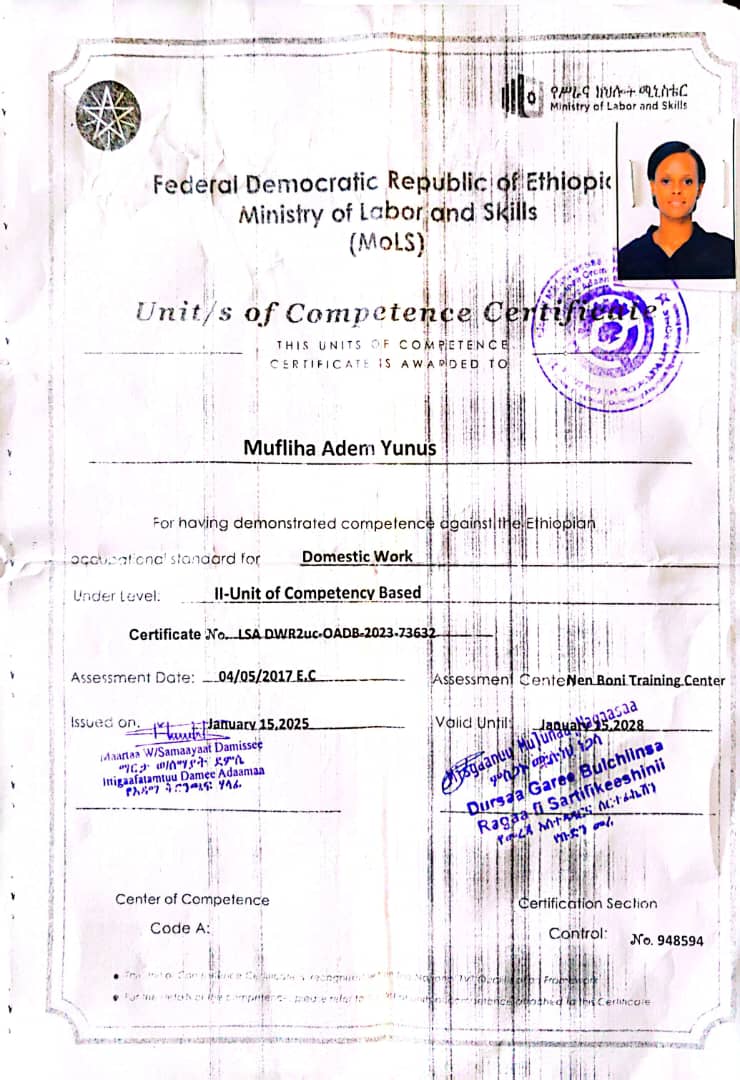 የሥራና ክህሎት ሚኒስቴር
Ministry of Labor and Skills
Federal Democratic Republic of Ethiopia
Ministry of Labor and Skills
(MoLS)
Unit/s of Competence Certificate
THIS UNITS OF COMPETENCE
CERTIFICATE IS AWARDED TO
Mufliha Adem Yunus
For having demonstrated competence against the Ethiopian
occupational standard for Domestic Work
Under Level: II-Unit of Competency Based
Certificate No. LSA DWR2uc-OADB-2023-73632
Assessment Date: 04/05/2017 E.C
Assessment Cente Nen Boni Training Center
Issued on. January 15,2025
Valid Until: January 15,2028
Maartaa W/Samaayaat Damissee
ማርታ ወ/ሰማያት ደምሴ
Itti gaafatamtuu Damee Adaamaa
የአዳማ ቅርንጫፍ ሃላፊ
Dursaa Garee Bulchiinsa
Ragaa fi Sartifikeeshinii
Center of Competence
Code A:
Certification Section
Control: No. 948594